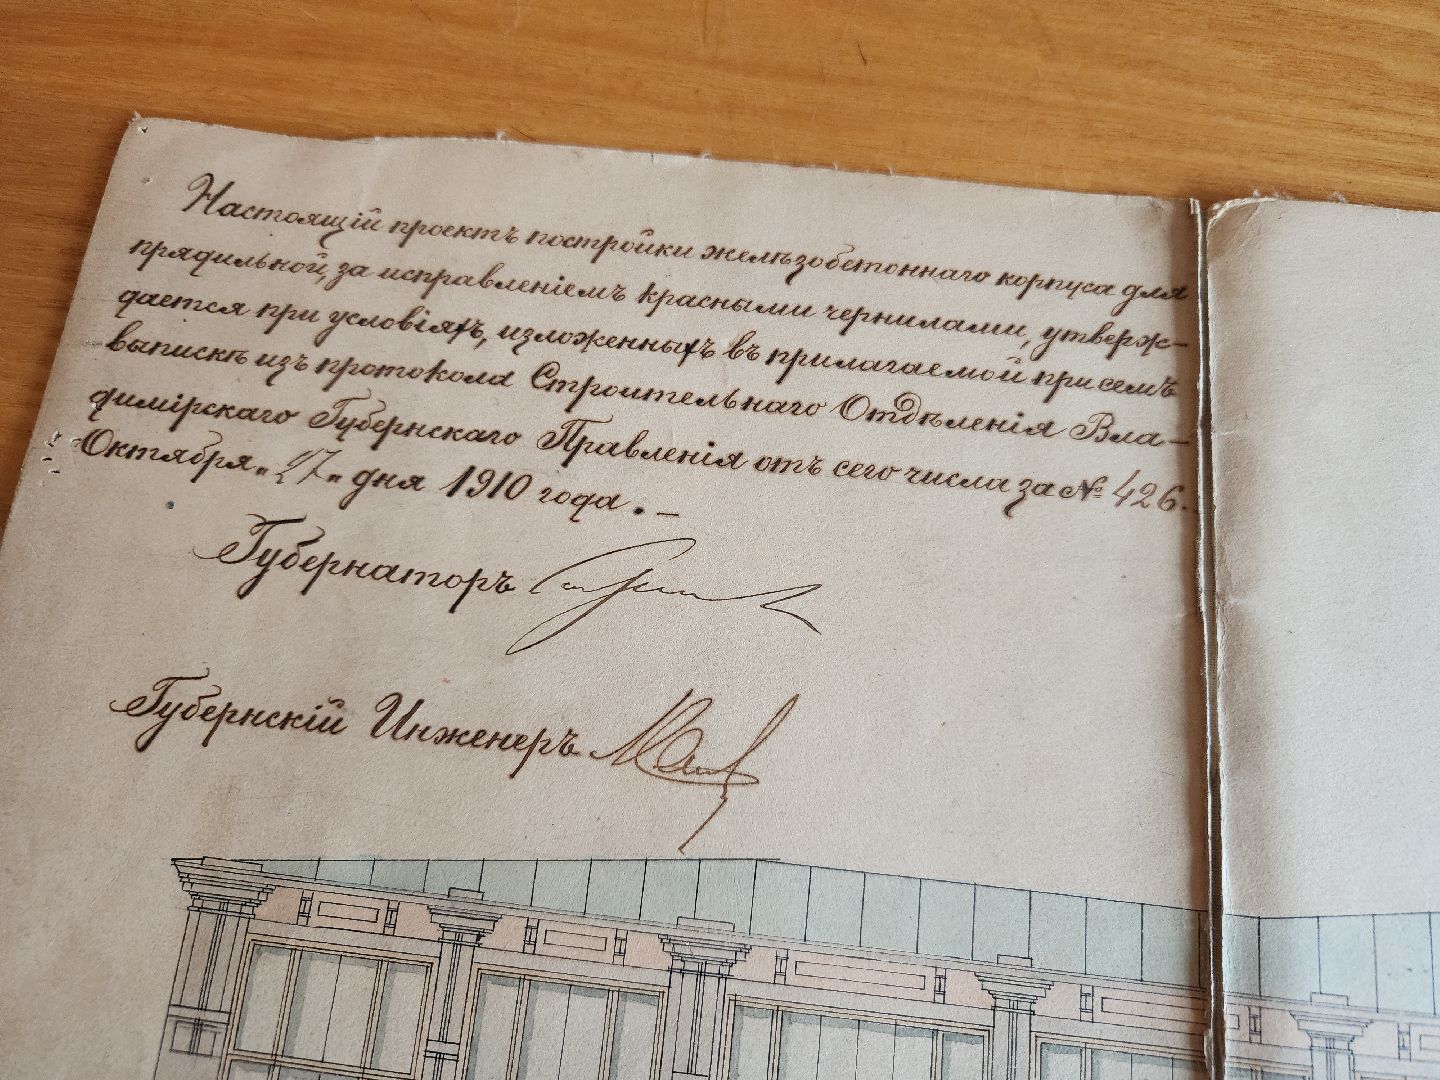 Настоящій проектъ постройки желѣзобетоннаго корпуса для
прядильной, за исправленіемъ красными чернилами, утверж-
дается при условіяхъ, изложенныхъ въ прилагаемой при семъ
выпискѣ изъ протокола Строительнаго Отдѣленія Вла-
димірскаго Губернскаго Правленія отъ сего числа за № 426.
Октября „27„ дня 1910 года.
Губернаторъ
Губернскій Инженеръ